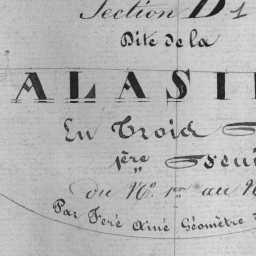 Section D 1
Dite de la
ALASI
En Trois
1ère Feui
du N°. 1er au N
Par Feré Ainé Géomètre